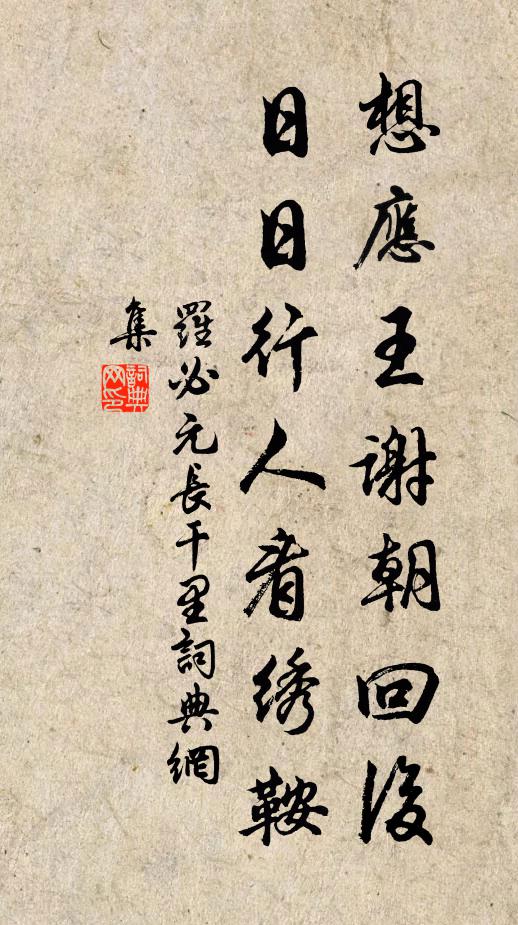 想應王謝朝回後
日日行人看绣鞍
羅必元長干里詞典網
集
詞典网印